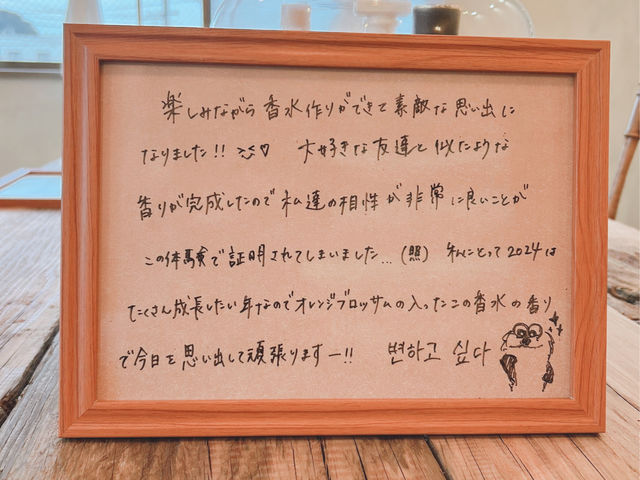 楽しみながら香水作りができて素敵な思い出に
なりました!! >ω<♡ 大好きな友達と似たような
香りが完成したので私達の相性が非常に良いことが
この体験で証明されてしまいました...(照) 私にとって2024は
たくさん成長したい年なのでオレンジブロッサムの入ったこの香水の香り
で今日を思い出して頑張りますー!! 변하고 싶다